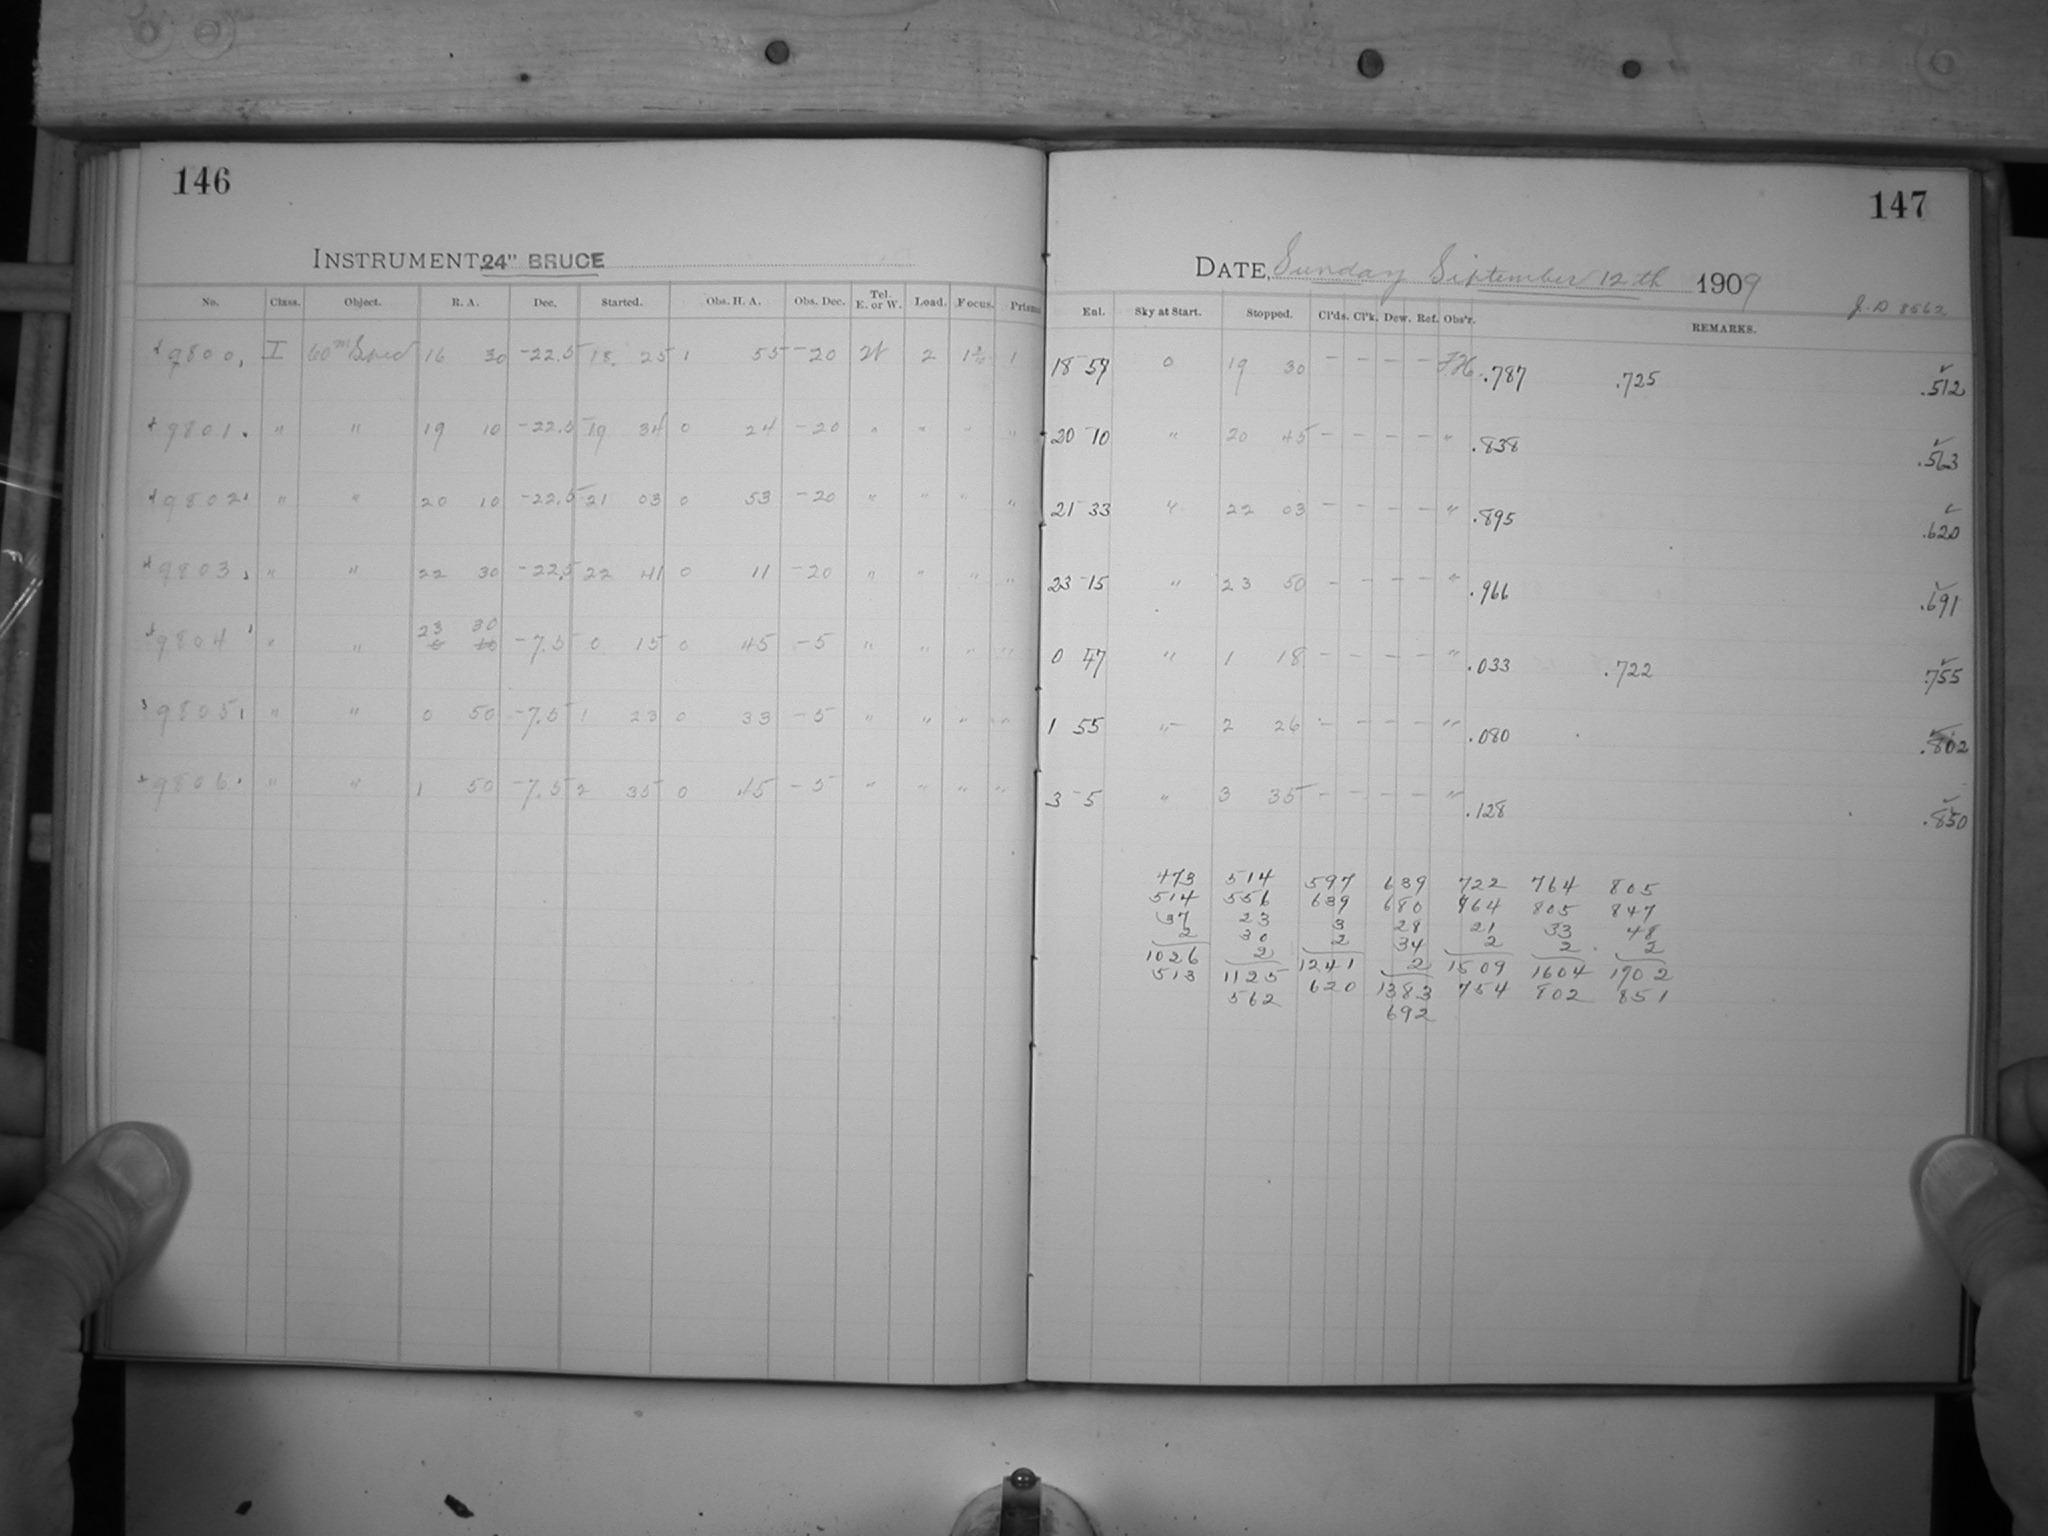 146
INSTRUMENT, 24" BRUCE
No. Class. Object. R. A. Dec. Started. Obs. H. A. Obs. Dec. Tel. E. or W. Load. Focus. Prisms
9800 I 60m 16 30 -22.5 18 25 1 55 -20 W 2 1
9801 " " 19 10 -22.5 19 34 0 24 -20 " " " "
9802 " " 20 10 -22.5 21 03 0 53 -20 " " " "
9803 " " 22 30 -22.5 22 41 0 11 -20 " " " "
23 30
9804 " " -7.5 0 15 0 45 -5 " " " "
9805 " " 0 50 -7.5 1 23 0 33 -5 " " " "
9806 " " 1 50 -7.5 2 35 0 45 -5 " " " "
147
DATE, Sunday September 12th 1909
J.D 8562
Enl. Sky at Start. Stopped. Cl'ds. Cl'k. Dew. Ref. Obs'r. REMARKS.
18 59 0 19 30 - - - - .787 .725 .512
20 10 " 20 45 - - - - " .838 .563
21 33 " 22 03 - - - - " .895 .620
23 15 " 23 50 - - - - " .966 .691
0 47 " 1 18 - - - - " .033 .722 .755
1 55 " 2 26 - - - - " .080 .802
3 5 " 3 35 - - - - " .128 .850
473 514 597 639 722 764 805
514 556 639 680 764 805 847
37 23 3 28 21 33 48
2 30 2 34 2 2 2
1026 2 1241 2 1509 1604 1702
513 1125 620 1383 754 802 851
562 692